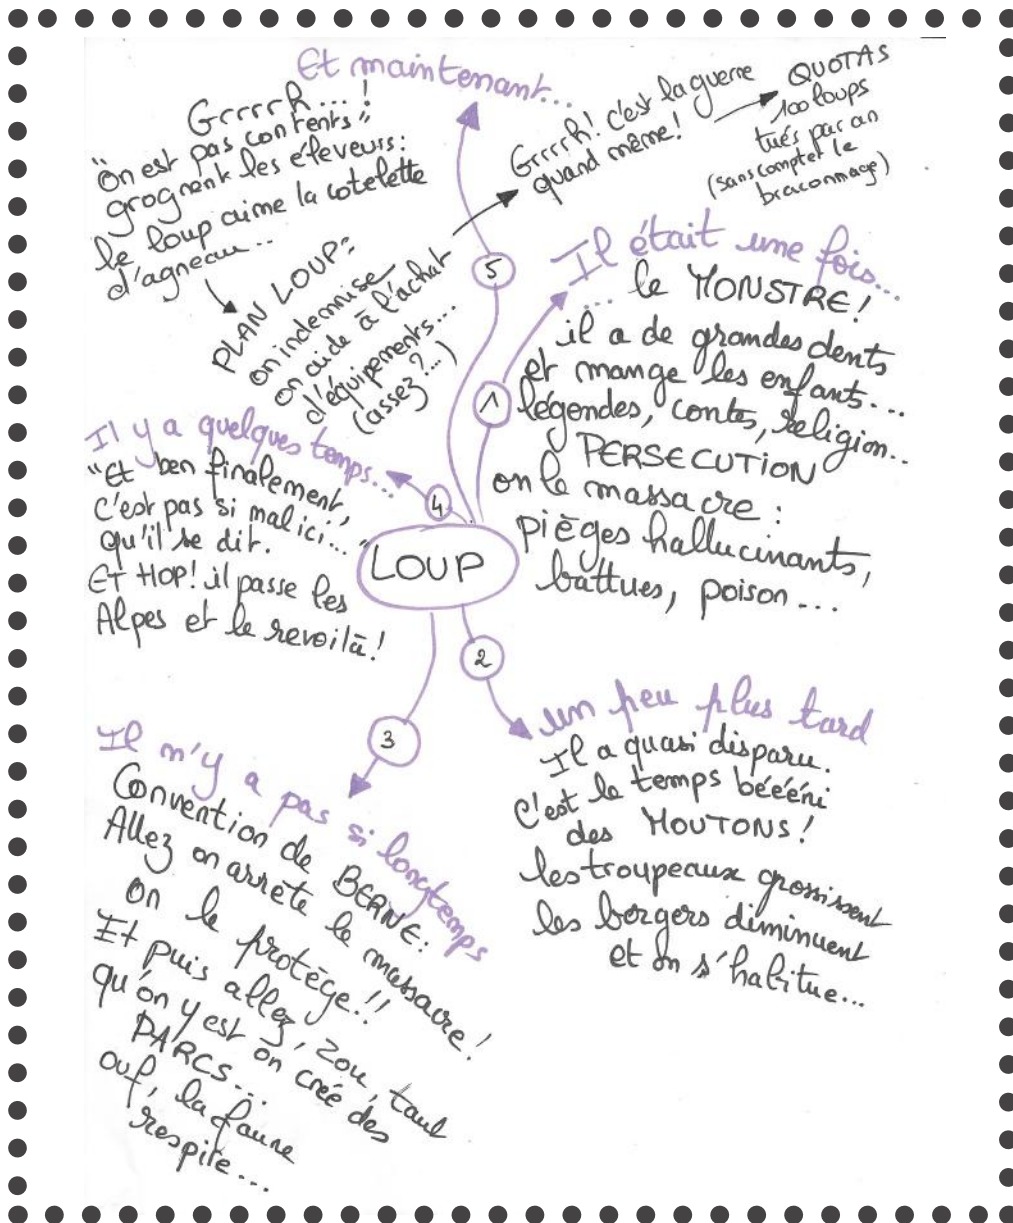 LOUP
1
Il était une fois...
... le MONSTRE!
il a de grandes dents
et mange les enfants...
légendes, contes, religion..
PERSECUTION
on le massacre :
pièges hallucinants,
battues, poison...
2
un peu plus tard
Il a quasi disparu.
C'est le temps béééni
des MOUTONS!
les troupeaux grossissent
les bergers diminuent
et on s'habitue...
3
Il n'y a pas si longtemps
Convention de BERNE:
Allez on arrête le massacre!
on le protège!!
Et puis allez, zou, tant
qu'on y est on créé des
PARCS...
ouf, la faune
respire...
4
Il y a quelques temps...
"Et ben finalement,
c'est pas si mal ici..."
qu'il se dit.
ET HOP! il passe les
Alpes et le revoilà!
5
Et maintenant...
Grrrrh...!
"on est pas contents",
grognent les éleveurs:
le loup aime la cotelette
d'agneau...
PLAN LOUP:
on indemnise
on aide à l'achat
d'équipements...
(assez?...)
Grrrrh! c'est la guerre
quand même!
QUOTAS
100 loups
tués par an
(sans compter le
braconnage)